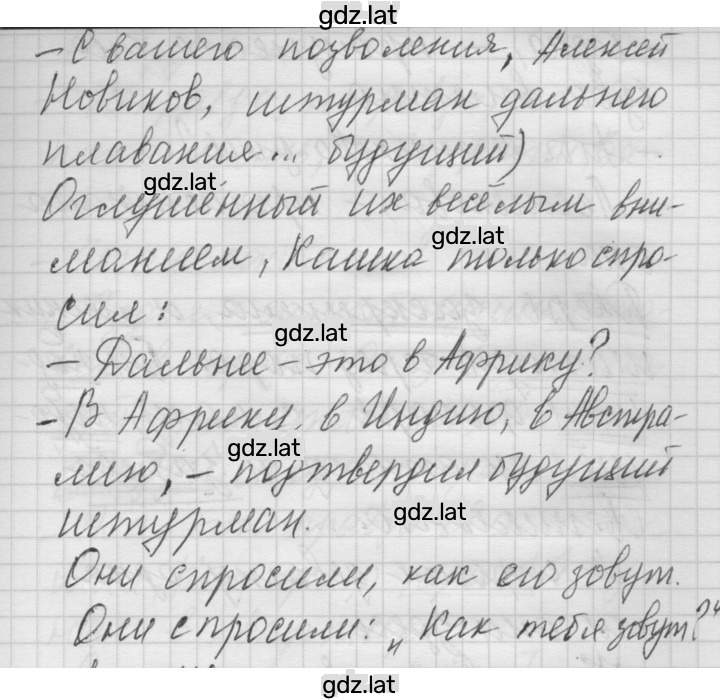 gdz.lat
– С вашего позволения, Алексей
Новиков, штурман дальнего
плавания... будущий)
gdz.lat
Оглушённый их весёлым вни-
gdz.lat
манием, Кашка только спро-
сил:
gdz.lat
– Дальнее – это в Африку?
– В Африку, в Индию, в Австра-
gdz.lat
лию, – подтвердил будущий
gdz.lat
штурман.
Они спросили, как его зовут.
Они спросили: „Как тебя зовут?“
gdz.lat